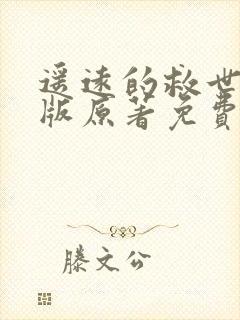 遥远的救世
版原著免費
滕文公